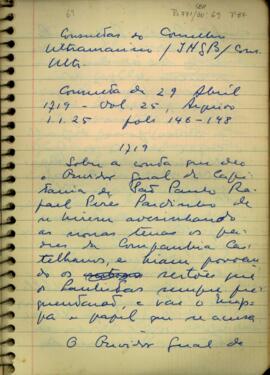 69
Consultas do Conselho
Ultramarino / IHGB / Cons.
Ultr.
Consulta de 29 Abril
1719 - Vol. 25, Arquivo
1.1.25 fols 146-148
1719
Sobre a conta que deo
o Ouvidor geral da Capi
tania de São Paulo Ra
fael Pires Pardinho de
se hirem avesinhando
as nossas terras os pa
dres da Companhia Cas
telhanos, e hiam povoan
do os sertões que
os Paulistas sempre
e vae o
papel que se acusa
O Ouvidor geral da